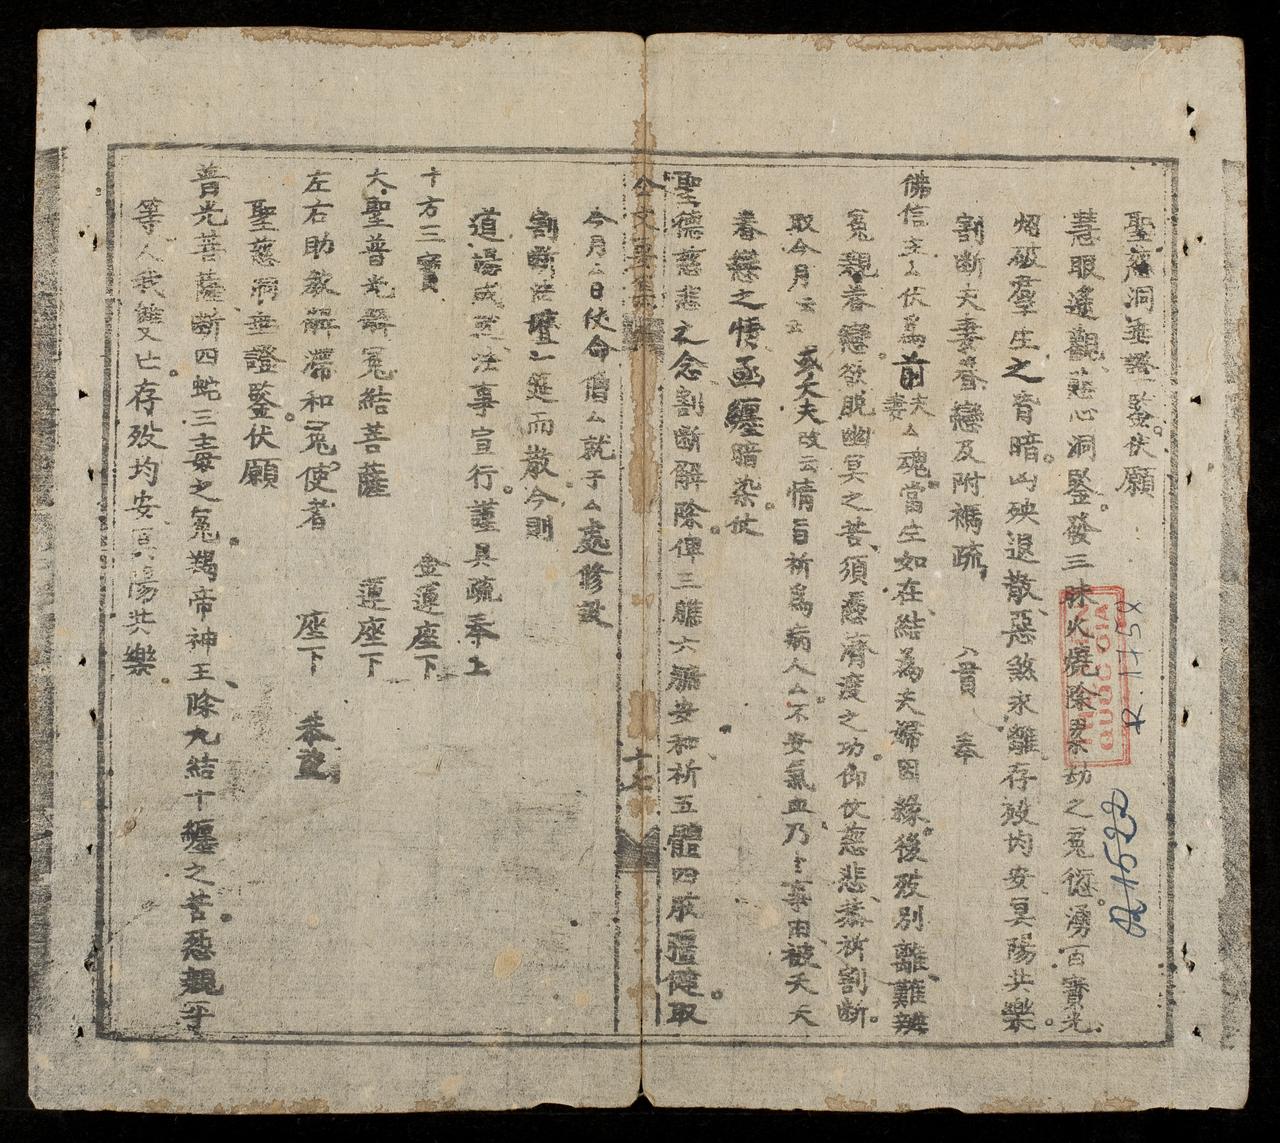 聖慈洞垂證鑒伏願
慧眼遙觀慈心洞鑒發三昧火燒除累劫之冤愆湧百寶光
照破羣生之昏暗凶殃退散惡煞求離存歿均安冥陽共樂
割斷夫妻眷戀及附禡疏 貢 奉
佛信主厶伏爲前夫妻厶魂當生如在結為夫婦因緣後歿別離難辨
冤親眷戀欲脫幽冥之苦須憑濟度之功仰仗慈悲恭祈割斷
取今月云云 或夭夫改云情旨祈爲病人厶不安氣血乃事由被夭夭
眷戀之情函纏暗染仗
聖德慈悲之念割斷解除俾三膲六安和祈五體四肢彊健取
今月厶日使命僧厶就于厶處修設
割斷法壇一筵而散今則
道場或法事宣行謹具疏奉上
十方三寶 金蓮座下
大聖普光解冤結菩薩 蓮座下
左右助教解滯和冤使者 座下 恭望
聖慈洞垂證鑒伏願
普光菩薩斷四蛇三毒之冤鴆帝神王除九結十纏之苦怨親平
等人我雙亡存歿均安冥陽共樂
十七
QUOC GIA
R.1450
R.1522